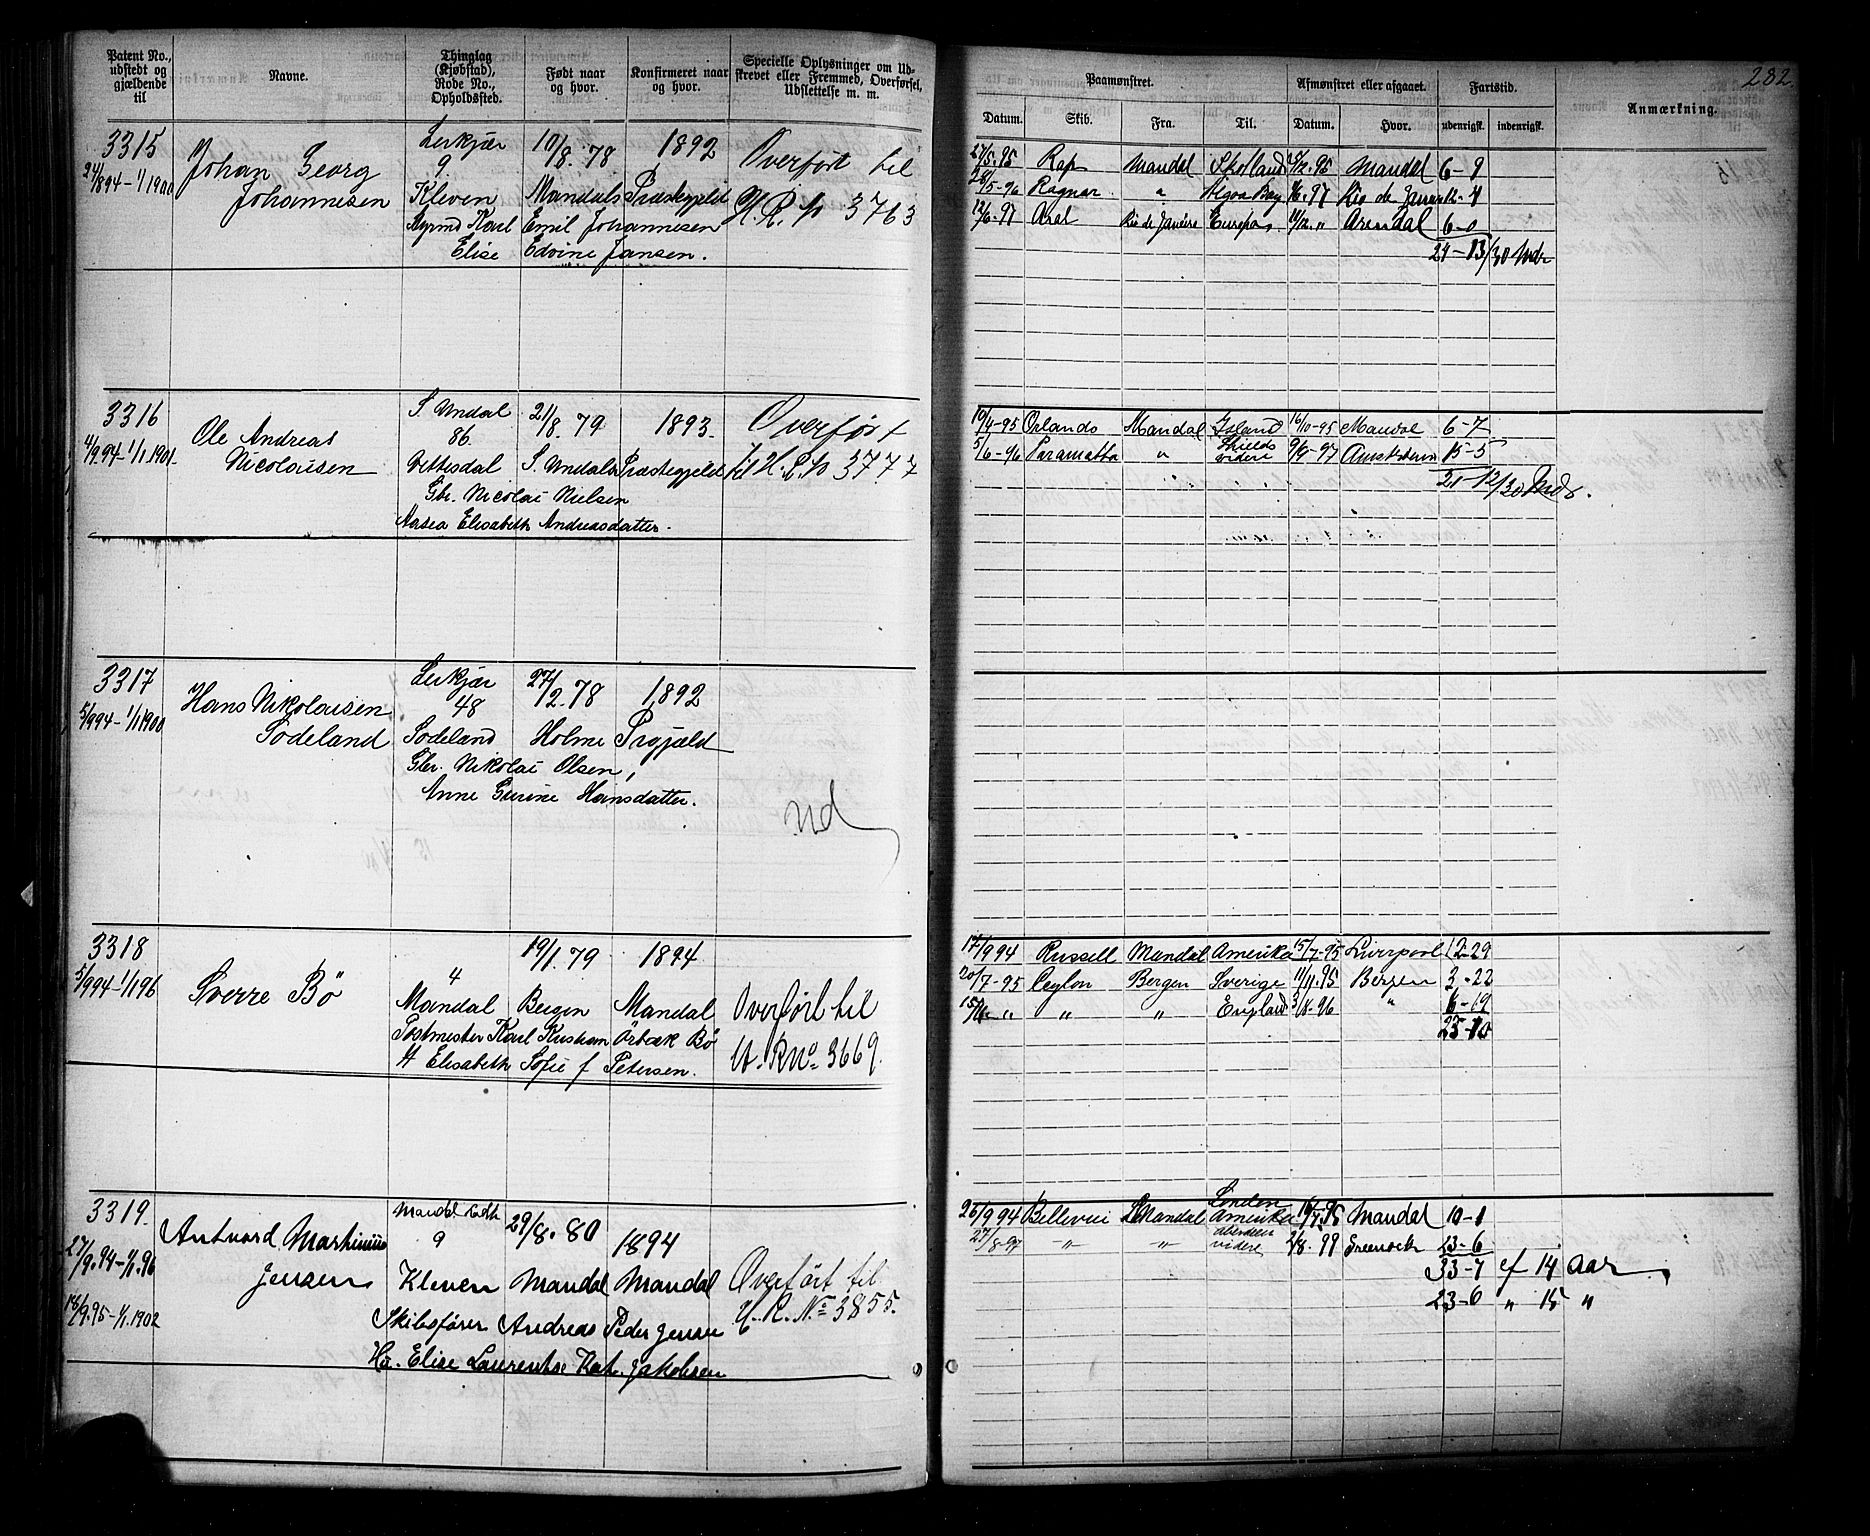 282.
Patent No., udstedt og gjældende til
Navne.
Thinglag (Kjøbstad), Rode No., Opholdssted.
Født naar og hvor.
Konfirmeret naar og hvor.
Specielle Oplysninger om Udskrevet eller Fremmed, Overførsel, Udslettelse m. m.
Paamønstret.
Afmønstret eller afgaaet.
Fartstid.
Anmærkning.
Datum. Skib. Fra. Til. Datum. Hvor. udenrigsk. indenrigsk.
3315 Johan Georg Johannesen
Kleven
9.
10/8. 78
1892
Mandals Præstegjeld
Emil Johannesen
Elise Edvine Jansen.
Overført til
H. R. No 3763
27/5.95 Rap Mandal Skotland Mandal 6-9
28/5-96 Ragnar " Algoa Bay Rio de Janeiro
12/6.97 Axel Rio de Janeiro Europa Arendal 6-0
24-13/30 Mdr
3316
4/9.94-1/1.1901
Ole Andreas Nicolaisen
S. Undal
86.
21/8. 79
1893.
Vittesdal S. Undals Præstegjeld
Gbr. Nicolai Nielsen
Aasea Elisabeth Andreasdatter.
Overført
til H. R. No 3777
19/4-95 Orlando Mandal Island 16/10-95 Mandal 6-7
5/6-96 Paramatta " Shields videre 9/9-97 Amsterdam 15-5
21-12/30 Mdr.
3317
5/994-1/1 1900
Hans Nikolaisen Sodeland
48
27/2.78
1892
Sodeland Holme Prgjæld
Gbr. Nikolai Olsen,
Anne Gurine Hansdatter.
ud
3318
5/994-1/196
Sverre Bö
4
19/1.79
1894
Mandal Bergen Mandal
Postmester Karl Kristian Örbæk Bö
H Elisabeth Sofie f Petersen.
Overført til
H. R No. 3669.
17/994 Russell Mandal Amerika 15/7-95 Liverpool 12-29
20/7-95 Ceylon Bergen Sverige 11/11.95 Bergen 3-22
" " England " 6-19
25-10
3319.
27/9.94-1/1.96
18/9.95-1/1.1902
Antnord Martinius Jensen
9
29/8. 80
1894
Kleven Mandal Mandal
Skibsfører Andreas Peder Jensen
Hu. Elise Laurentse Kat. Jakobsen
Overført til
H. R. No 3855.
26/994 Bellevue Mandal London Amerika Mandal 10-1
27/8-97 " " Aberdeen videre Greenock 23-6
33-7 ef 14 Aar
23-6 " 15 "